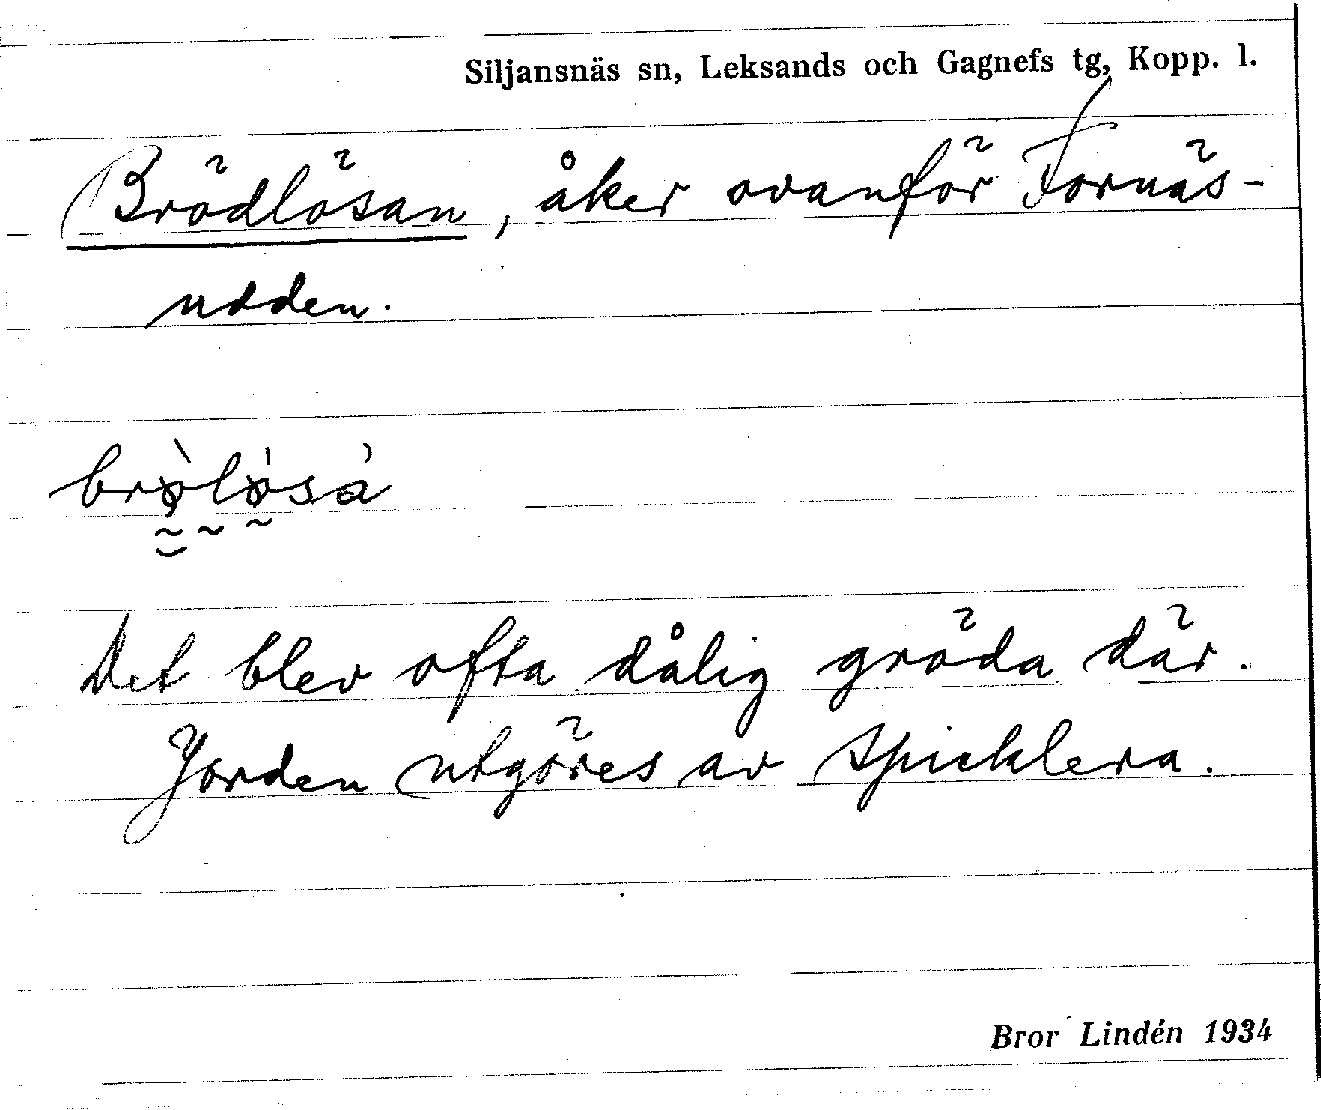 Siljansnäs sn, Leksands och Gagnefs tg, Kopp. l.
Brödlösan, åker ovanför Fornäs-
udden.
brø̀lø̀sà
Det blev ofta dålig gröda där.
Jorden utgöres av spicklera.
Bror Lindén 1934